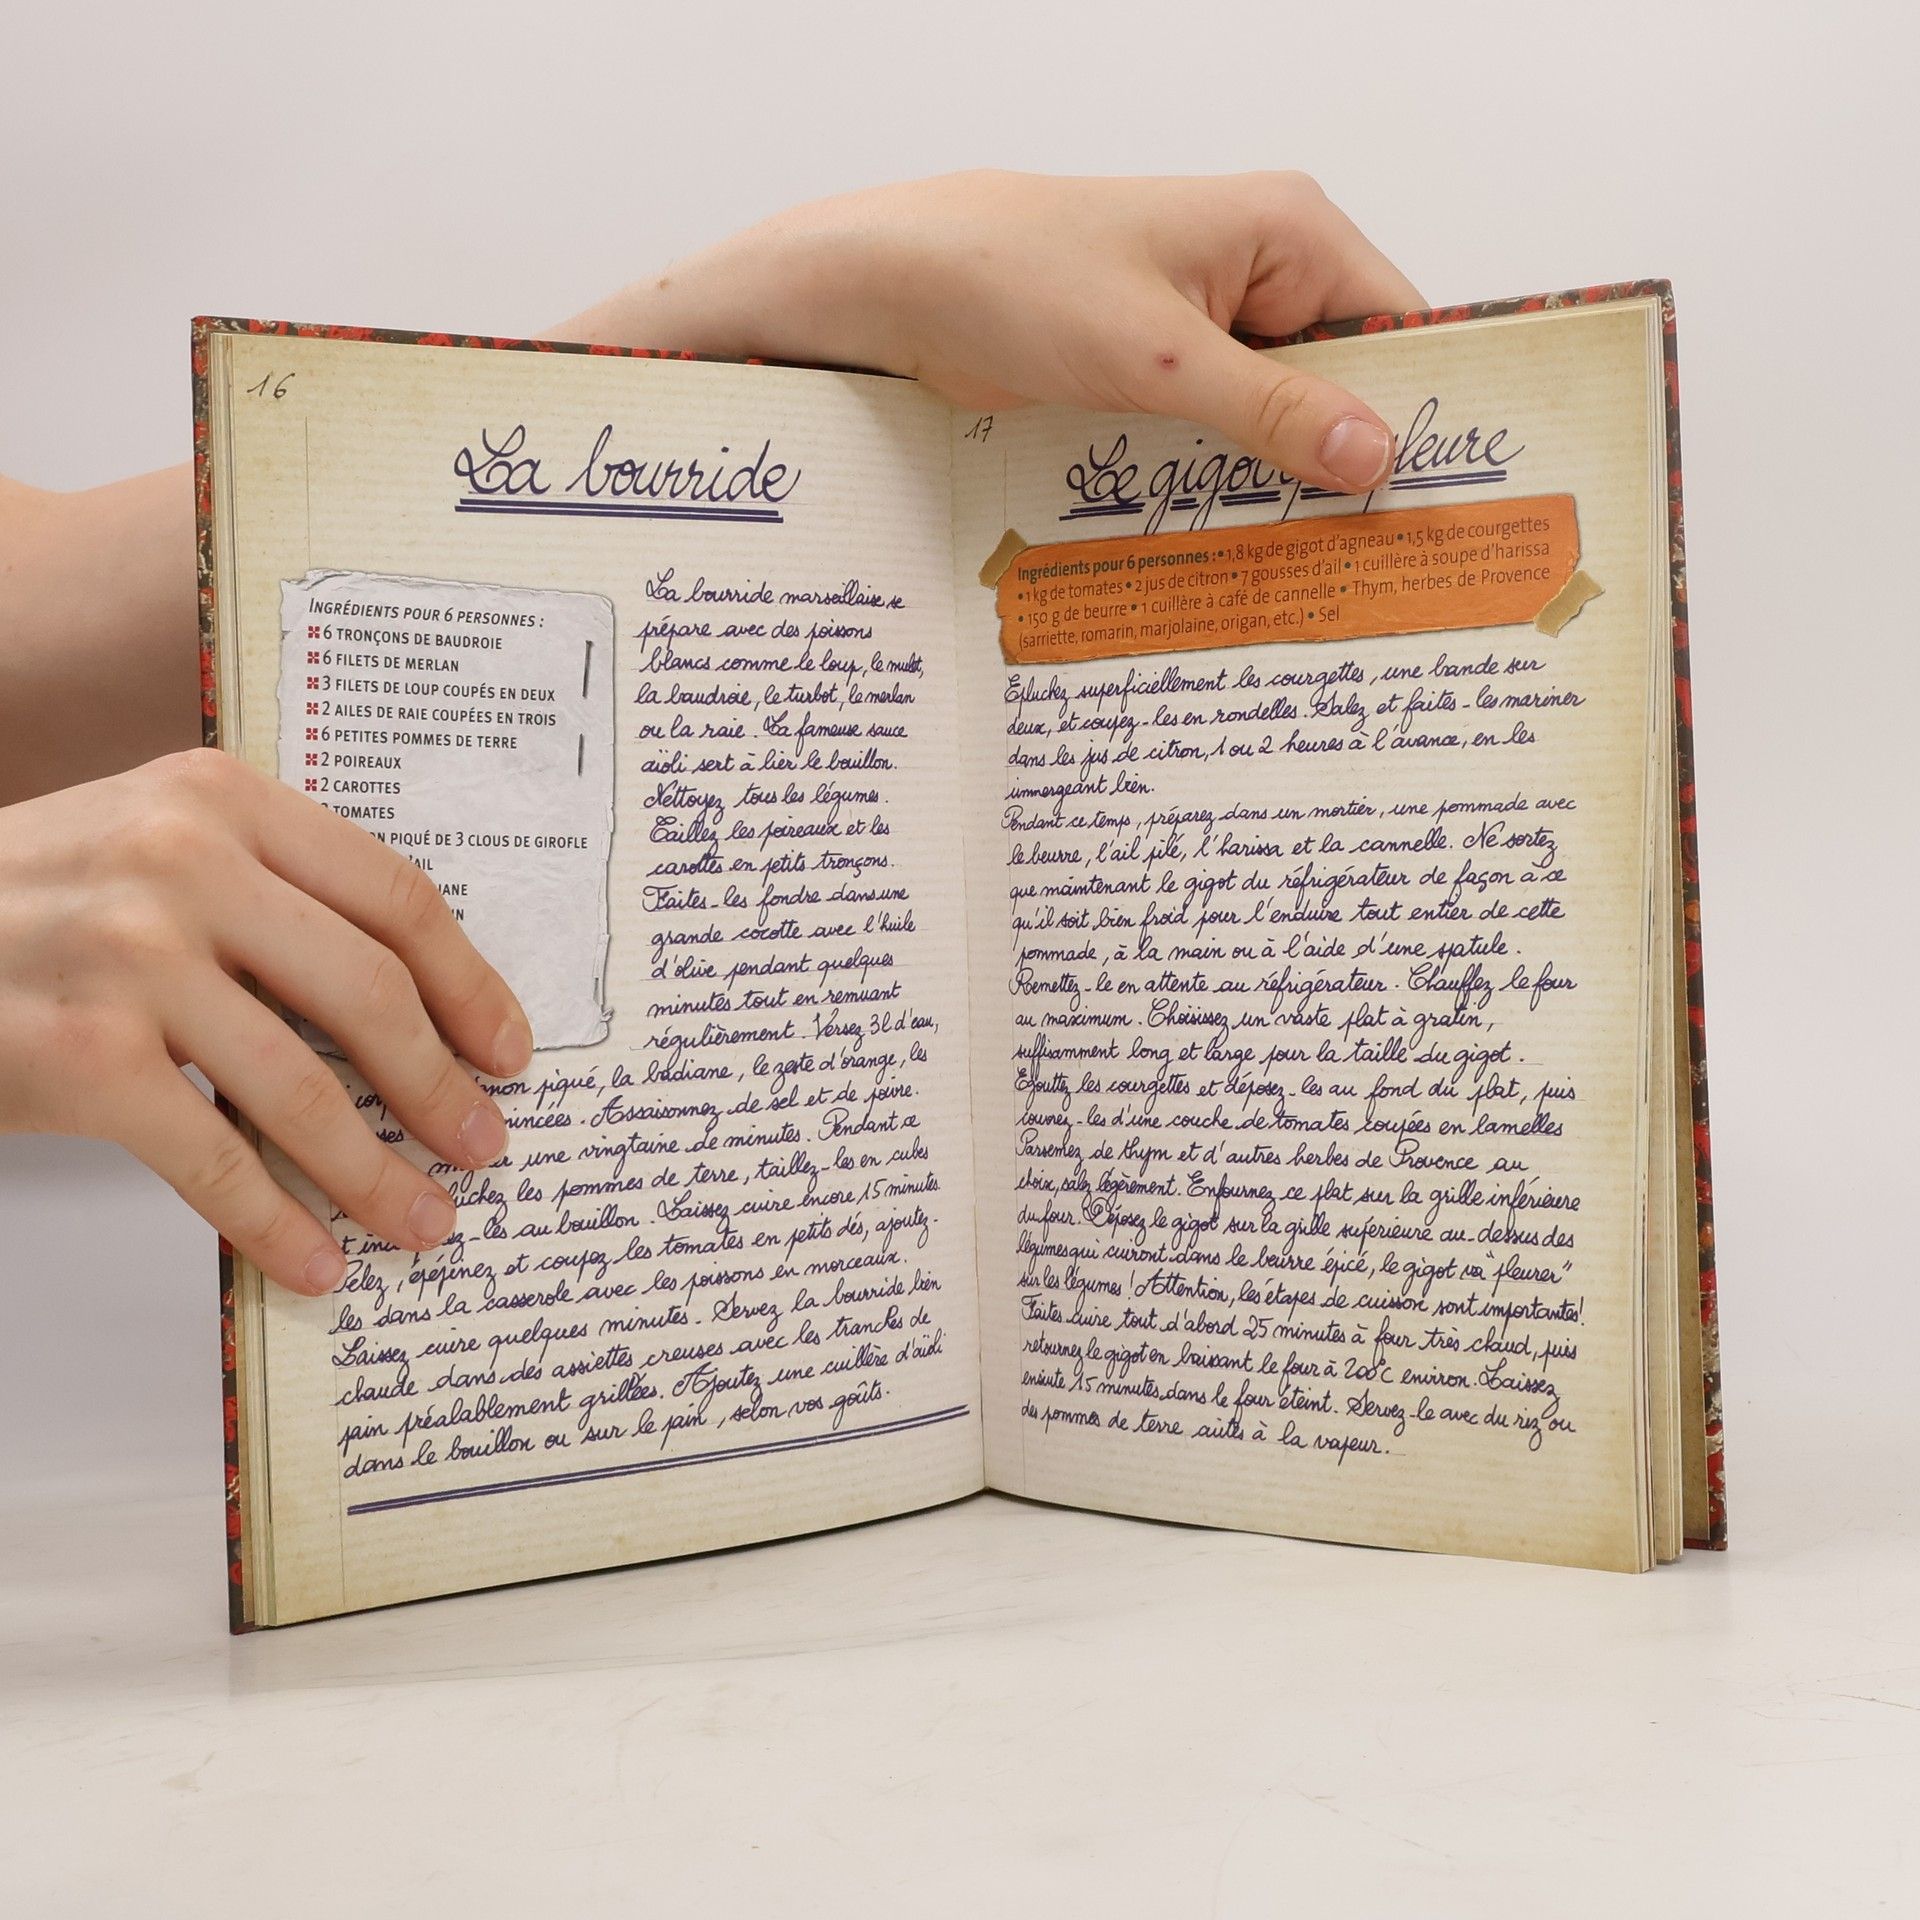 16
La bourride
INGRÉDIENTS POUR 6 PERSONNES :
6 TRONÇONS DE BAUDROIE
6 FILETS DE MERLAN
3 FILETS DE LOUP COUPÉS EN DEUX
2 AILES DE RAIE COUPÉES EN TROIS
6 PETITES POMMES DE TERRE
2 POIREAUX
2 CAROTTES
TOMATES
PIQUÉ DE 3 CLOUS DE GIROFLE
La bourride marseillaise se
prépare avec des poissons
blancs comme le loup, le mulet,
la baudroie, le turbot, le merlan
ou la raie. La fameuse sauce
aïoli sert à lier le bouillon.
Nettoyez tous les légumes.
Taillez les poireaux et les
carottes en petits tronçons.
Faites-les fondre dans une
grande cocotte avec l'huile
d'olive pendant quelques
minutes tout en remuant
régulièrement. Versez 3l d'eau,
piqué, la badiane, le zeste d'orange, les
mincées. Assaisonnez de sel et de poivre.
une vingtaine de minutes. Pendant ce
les pommes de terre, taillez-les en cubes
-les au bouillon. Laissez cuire encore 15 minutes.
Pelez, épépinez et coupez les tomates en petits dés, ajoutez-
les dans la casserole avec les poissons en morceaux.
Laissez cuire quelques minutes. Servez la bourride bien
chaude dans des assiettes creuses avec les tranches de
pain préalablement grillées. Ajoutez une cuillère d'aïoli
dans le bouillon ou sur le pain, selon vos goûts.
17
Le gigot pleure
Ingrédients pour 6 personnes : • 1,8 kg de gigot d'agneau • 1,5 kg de courgettes
• 1 kg de tomates • 2 jus de citron • 7 gousses d'ail • 1 cuillère à soupe d'harissa
• 150 g de beurre • 1 cuillère à café de cannelle • Thym, herbes de Provence
(sarriette, romarin, marjolaine, origan, etc.) • Sel
Epluchez superficiellement les courgettes, une bande sur
deux, et coupez-les en rondelles. Salez et faites-les mariner
dans les jus de citron, 1 ou 2 heures à l'avance, en les
immergeant bien.
Pendant ce temps, préparez dans un mortier, une pommade avec
le beurre, l'ail pilé, l'harissa et la cannelle. Ne sortez
que maintenant le gigot du réfrigérateur de façon à ce
qu'il soit bien froid pour l'enduire tout entier de cette
pommade, à la main ou à l'aide d'une spatule.
Remettez-le en attente au réfrigérateur. Chauffez le four
au maximum. Choisissez un vaste plat à gratin,
suffisamment long et large pour la taille du gigot.
Egouttez les courgettes et déposez-les au fond du plat, puis
couvrez-les d'une couche de tomates coupées en lamelles
Parsemez de thym et d'autres herbes de Provence au
choix, salez légèrement. Enfournez ce plat sur la grille inférieure
du four. Déposez le gigot sur la grille supérieure au-dessus des
légumes qui cuiront dans le beurre épicé, le gigot va "pleurer"
sur les légumes ! Attention, les étapes de cuisson sont importantes!
Faites cuire tout d'abord 25 minutes à four très chaud, puis
retournez le gigot en baissant le four à 200°C environ. Laissez
ensuite 15 minutes dans le four éteint. Servez-le avec du riz ou
des pommes de terre cuites à la vapeur.